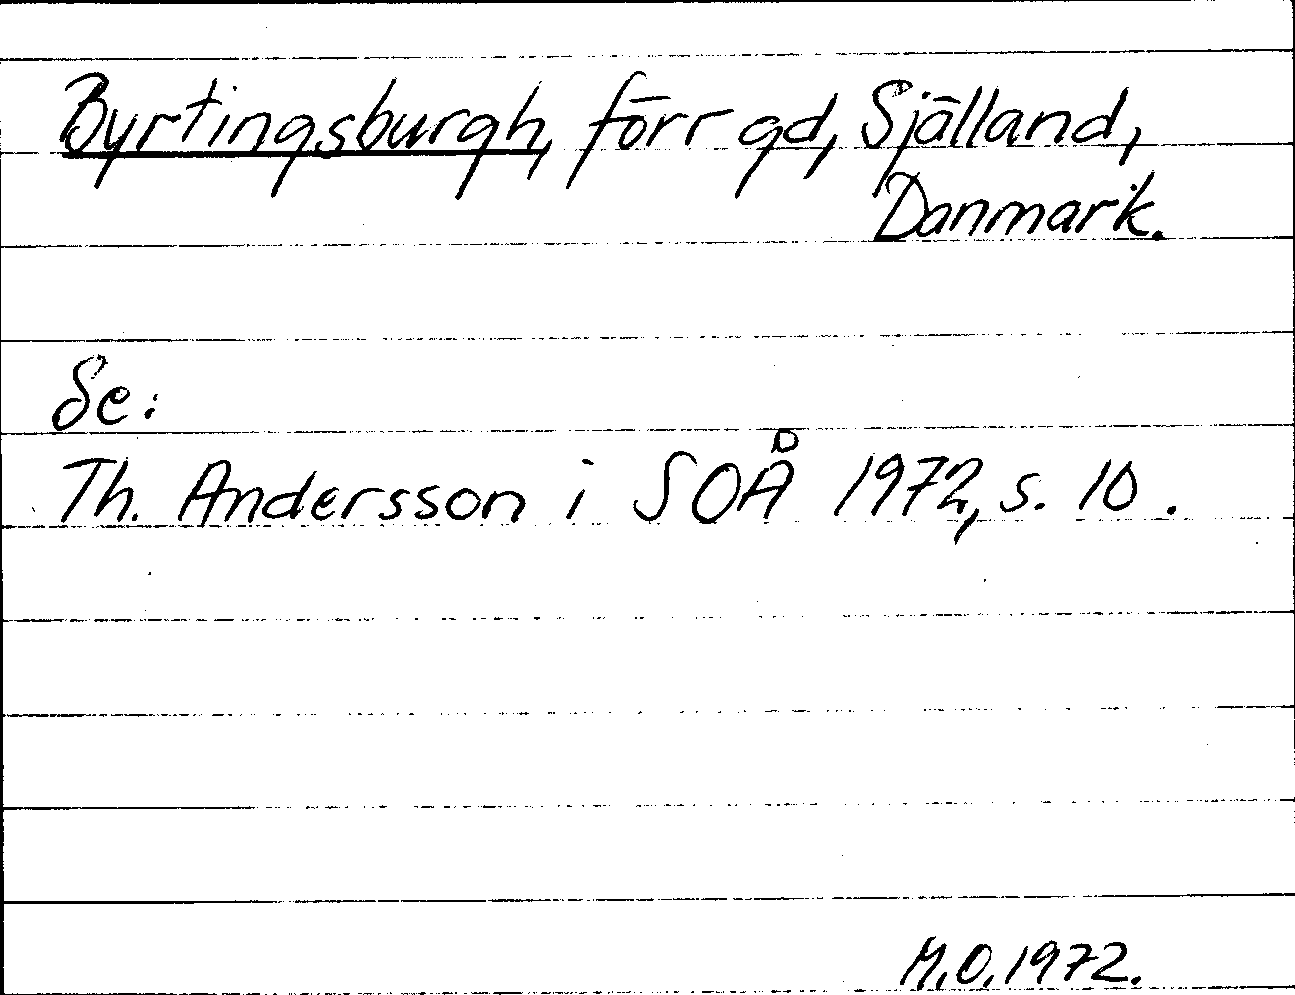 Byrtingsburgh, förr gd, Själland,
Danmark.
Se:
Th. Andersson i SOÅ 1972, s. 10.
M.O. 1972.